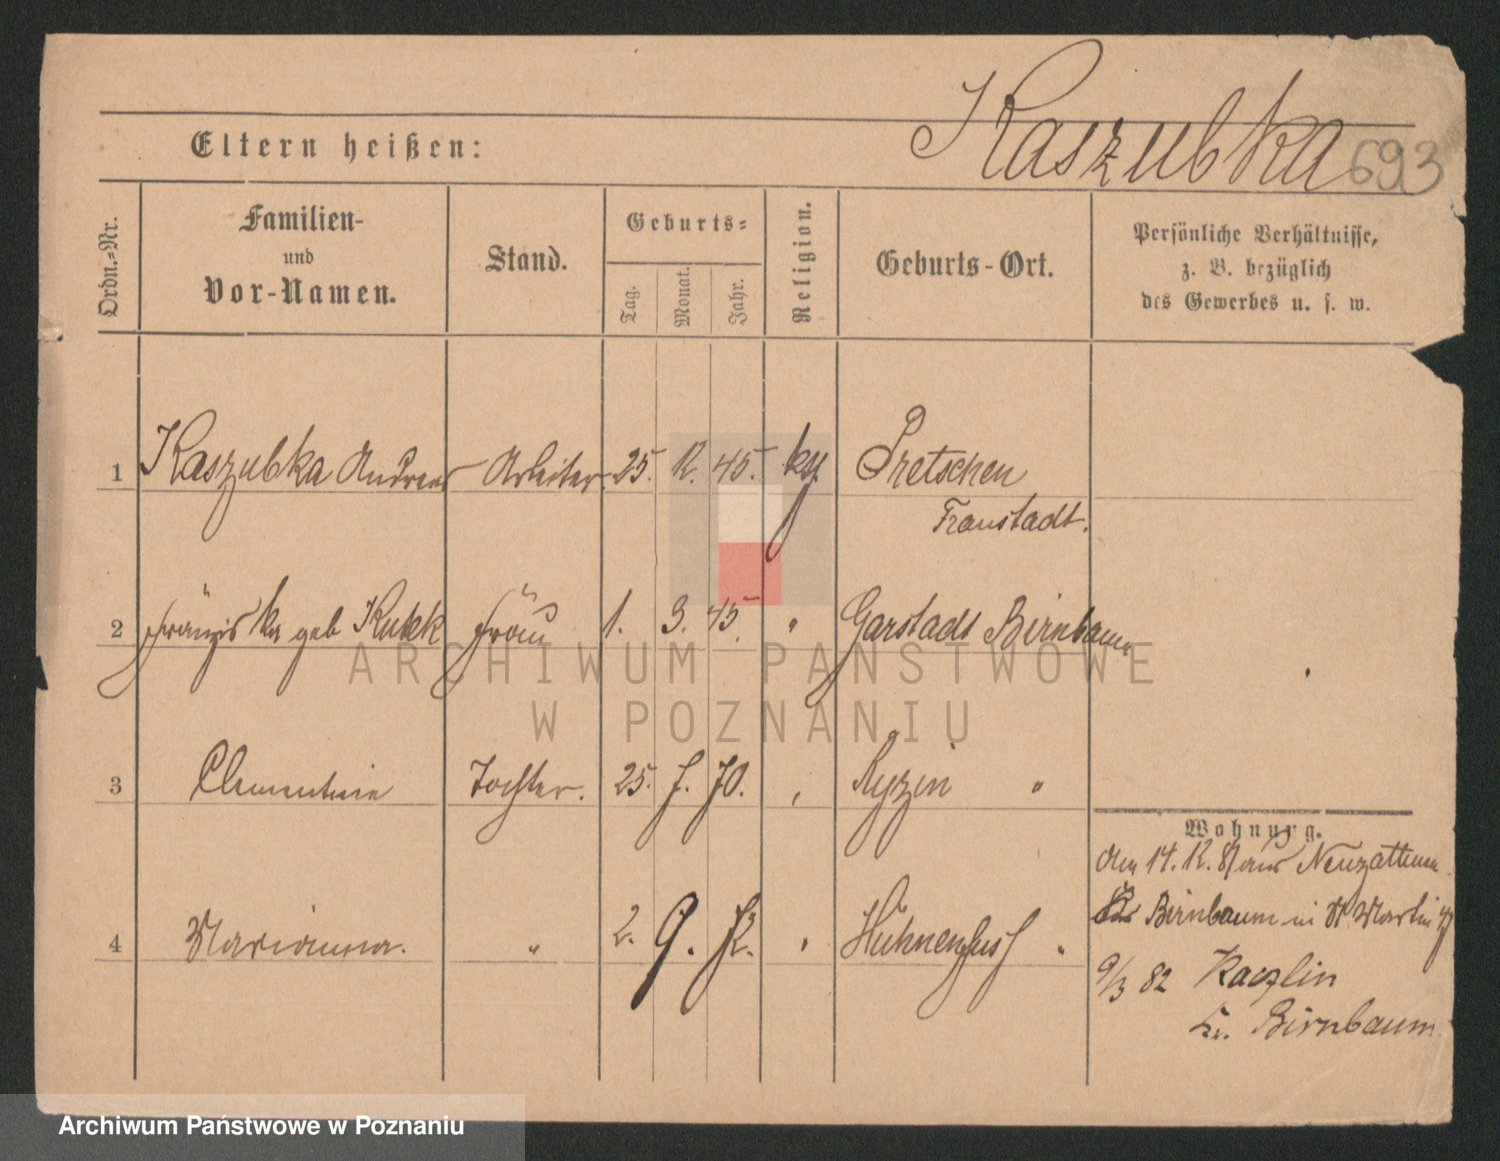 Kaszubka 693
Eltern heißen:
Ordn.-Nr.
Familien-
und
Vor-Namen.
Stand.
Geburts-
Tag.
Monat.
Jahr.
Religion.
Geburts-Ort.
Persönliche Verhältnisse,
z. B. bezüglich
des Gewerbes u. s. w.
1 Kaszubka Andreas Arbeiter 25. 12. 45. Pretschen
Fraustadt.
2 Franziska geb Frau 1. 3. 45. " Garstadt Birnbaum
3 Clementine Tochter. 25. 7. 70. " Ryzin "
4 Marianna. " 2. 9. 72. " "
Wohnung.
den 14. 12. 81 aus
Birnbaum in St Martin
9/3 82 Kaczlin
Kr. Birnbaum
ARCHIWUM PAŃSTWOWE
W POZNANIU
Archiwum Państwowe w Poznaniu